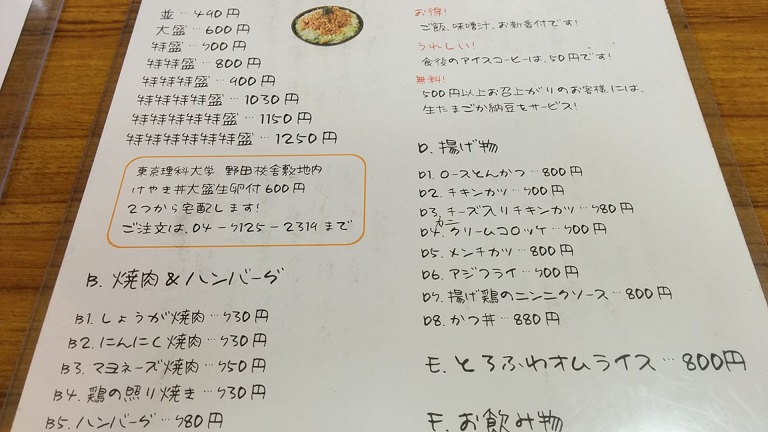 並…490円
大盛…600円
特盛…700円
特特盛…800円
特特特盛…900円
特特特特盛…1030円
特特特特特盛…1150円
特特特特特特盛…1250円
東京理科大学 野田校舎敷地内
けやき丼大盛生卵付600円
2つから宅配します!
ご注文は、04-7125-2319まで
B. 焼肉&ハンバーグ
B1. しょうが焼肉…730円
B2. にんにく焼肉…730円
B3. マヨネーズ焼肉…750円
B4. 鶏の照り焼き…730円
B5. ハンバーグ…780円
お得!
ご飯、味噌汁、お新香付です!
うれしい!
食後のアイスコーヒーは、50円です!
無料!
500円以上お召上がりのお客様には、
生たまごか納豆をサービス!
D. 揚げ物
D1. ロースとんかつ…800円
D2. チキンカツ…700円
D3. チーズ入りチキンカツ…780円
D4. カニクリームコロッケ…700円
D5. メンチカツ…800円
D6. アジフライ…700円
D7. 揚げ鶏のニンニクソース…800円
D8. かつ丼…880円
E. とろふわオムライス…800円
F. お飲み物